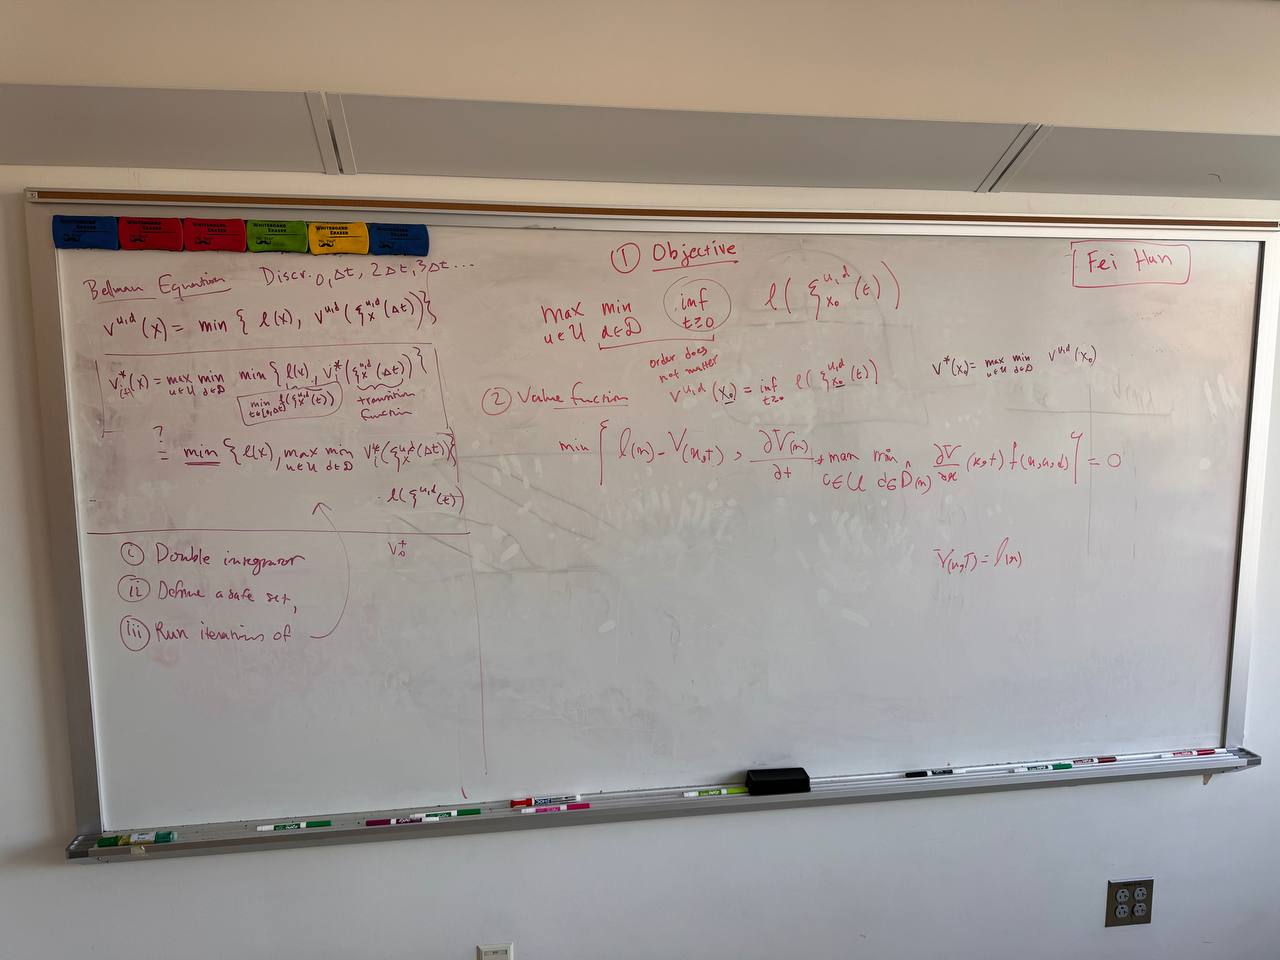 WHITEBOARD ERASER
WHITEBOARD ERASER
WHITEBOARD ERASER
WHITEBOARD ERASER
WHITEBOARD ERASER
Belman Equation Discr. 0, Δt, 2Δt, 3Δt ...
V^{u,d}(x) = min { l(x), V^{u,d}(ξ_x^{u,d}(Δt)) }
V*_{i+1}(x) = max_{u∈U} min_{d∈D} min { l(x), V_i^*(ξ_x^{u,d}(Δt)) }
min_{t∈[0,Δt]} l(ξ_x^{u,d}(t))
transition function
?
= min { l(x), max_{u∈U} min_{d∈D} V_i^*(ξ_x^{u,d}(Δt)) }
l(ξ^{u,d}(t))
V_0^+
(i) Double integrator
(ii) Define a safe set,
(iii) Run iterations of
① Objective
max_{u∈U} min_{d∈D} inf_{t≥0} l(ξ_{x_0}^{u,d}(t))
order does
not matter
② Value function V^{u,d}(x_0) = inf_{t≥0} l(ξ_{x_0}^{u,d}(t))
V*(x_0) = max_{u∈U} min_{d∈D} V^{u,d}(x_0)
min { l(x) - V(x,t), ∂V(x)/∂t + max_{u∈U} min_{d∈D̂(x)} ∂V/∂x (x,t) f(x,u,d) } = 0
V(x,T) = l(x)
Fei Han